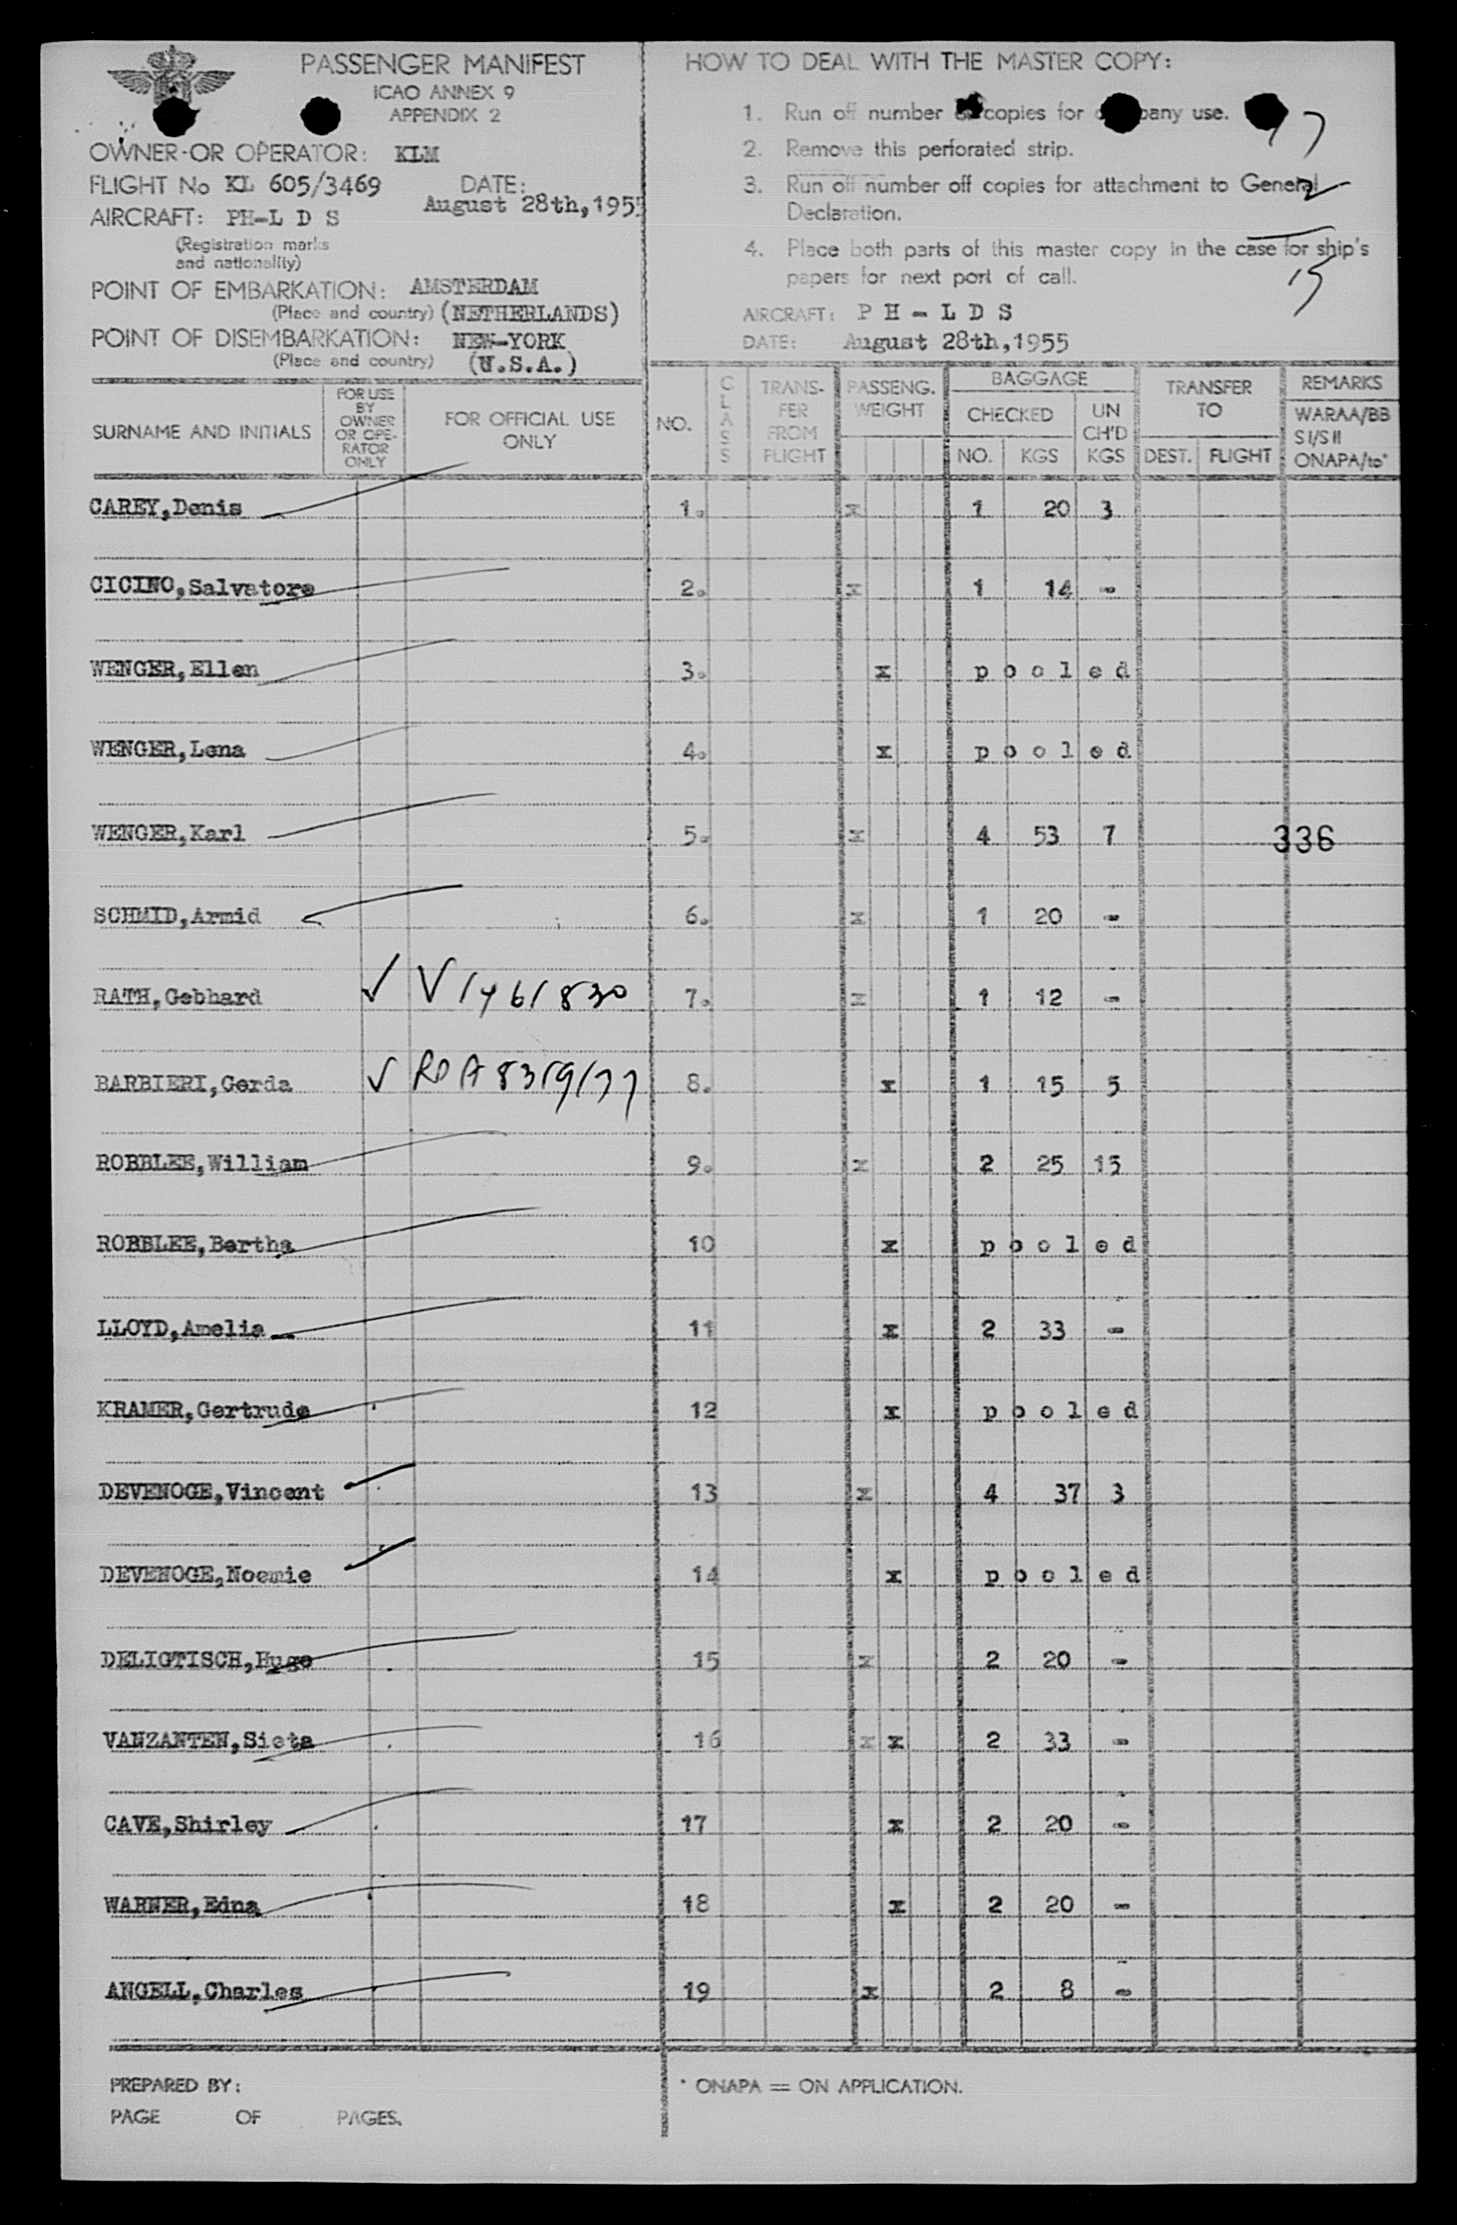 PASSENGER MANIFEST
ICAO ANNEX 9
APPENDIX 2
OWNER-OR OPERATOR: KLM
FLIGHT No KL 605/3469 DATE:
August 28th,1955
AIRCRAFT: PH-L D S
(Registration marks
and nationality)
POINT OF EMBARKATION: AMSTERDAM
(Place and country) (NETHERLANDS)
POINT OF DISEMBARKATION: NEW-YORK
(Place and country) (U.S.A.)
HOW TO DEAL WITH THE MASTER COPY:
1. Run off number copies for use.
2. Remove this perforated strip.
3. Run off number off copies for attachment to General
Declaration.
4. Place both parts of this master copy in the case for ship's
papers for next port of call.
AIRCRAFT: P H - L D S
DATE: August 28th,1955
SURNAME AND INITIALS
FOR USE
BY
OWNER
OR OPE-
RATOR
ONLY
FOR OFFICIAL USE
ONLY
NO.
CLASS
TRANS-
FER
FROM
FLIGHT
PASSENG.
WEIGHT
BAGGAGE
CHECKED
NO. KGS
UN
CH'D
KGS
TRANSFER
TO
DEST. FLIGHT
REMARKS
WARAA/BB
S I/S II
ONAPA/to*
CAREY,Denis 1. x 1 20 3
CICINO,Salvatore 2. x 1 14 -
WENGER,Ellen 3. x p o o l e d
WENGER,Lena 4. x p o o l e d
WENGER,Karl 5. x 4 53 7 336
SCHMID,Armid 6. x 1 20 -
RATH,Gebhard ✓ V1461830 7. x 1 12 -
BARBIERI,Gerda ✓ 8. x 1 15 5
ROBBLEE,William 9. x 2 25 15
ROBBLEE,Bertha 10 x p o o l e d
LLOYD,Amelia 11 x 2 33 -
KRAMER,Gertrude 12 x p o o l e d
DEVENOGE,Vincent 13 x 4 37 3
DEVENOGE,Noemie 14 x p o o l e d
DELIGTISCH,Hugo 15 x 2 20 -
VANZANTEN,Sieta 16 x x 2 33 -
CAVE,Shirley 17 x 2 20 -
WARNER,Edna 18 x 2 20 -
ANGELL,Charles 19 x 2 8 -
PREPARED BY:
PAGE OF PAGES.
* ONAPA = ON APPLICATION.